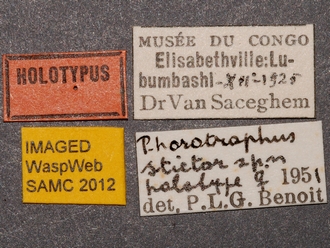 HOLOTYPUS
MUSÉE DU CONGO
Elisabethville: Lu-
bumbashi - XII-1925
Dr Van Saceghem
IMAGED
WaspWeb
SAMC 2012
stictor sp.n
holotype ♀ 1951
det, P.L.G. Benoit